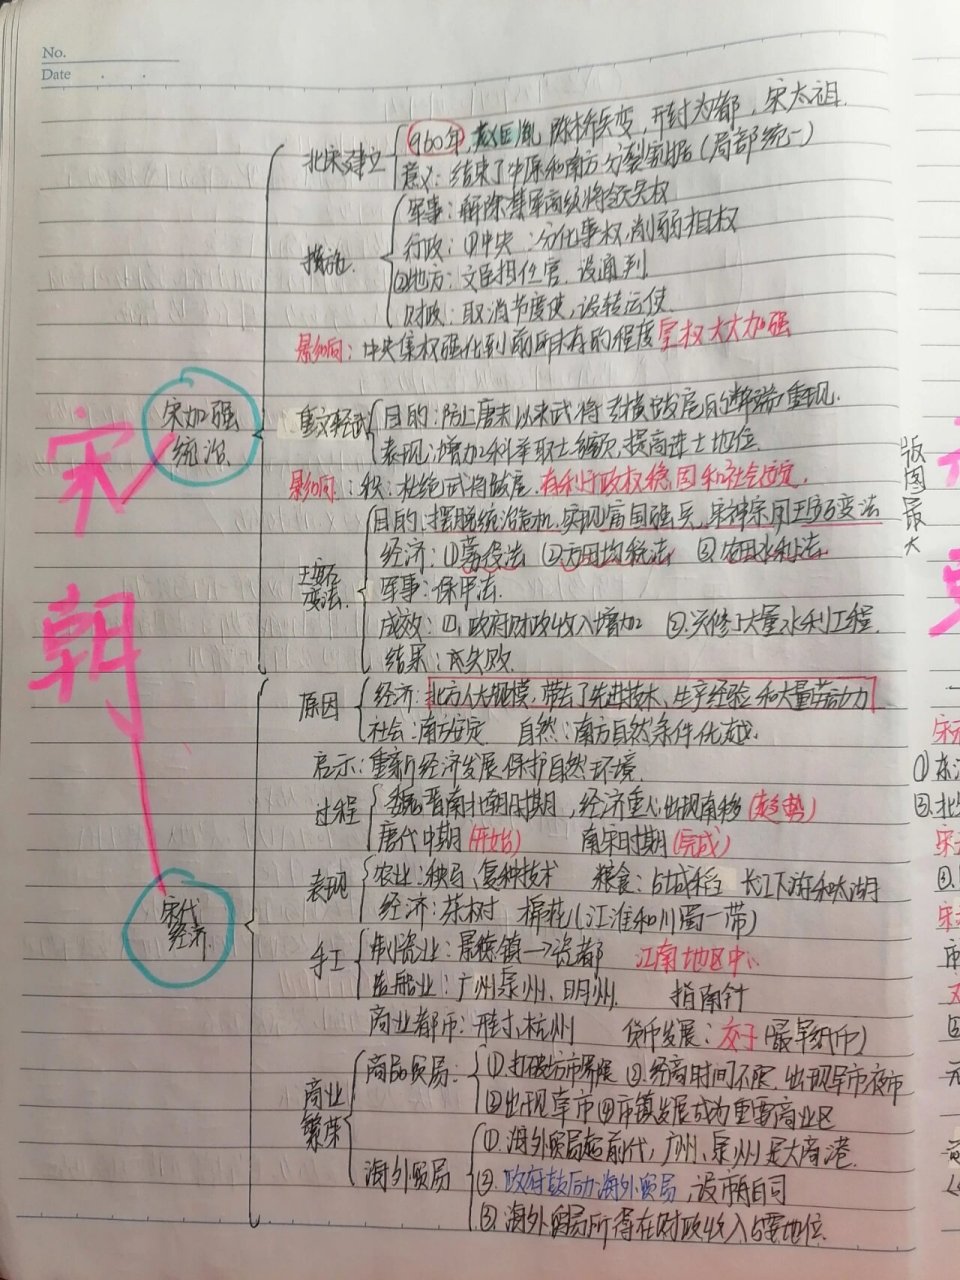 No.
Date
宋朝
宋加强
统治
北宋建立
960年,赵匡胤 陈桥兵变,开封为都,宋太祖.
意义:结束了中原和南方分裂割据(局部统一)
措施.
军事:解除禁军高级将领兵权
行政:①中央:分化事权,削弱相权
②地方:文臣担任官.设通判
财政:取消节度使,设转运使
影响:中央集权强化到前所未有的程度 皇权大大加强
重文轻武
目的:防止唐末以来武将专横跋扈的弊端重现.
表现:增加科举取士名额,提高进士地位.
影响:积:杜绝武将跋扈.有利于政权稳固和社会安定
王安石
变法.
目的.摆脱统治危机,实现富国强兵,宋神宗用王安石变法
经济:①募役法 ②方田均税法 ③农田水利法.
军事:保甲法.
成效:①.政府财政收入增加 ②.兴修了大量水利工程.
结果:失败.
宋代
经济.
原因
经济:北方人大规模,带去了先进技术、生产经验和大量劳动力
社会:南方安定 自然:南方自然条件优越.
启示:重新经济发展.保护自然环境.
过程
魏晋南北朝时期,经济重心出现南移(趋势)
唐代中期(开始) 南宋时期(完成)
表现
农业:秧马、复种技术 粮食:占城稻 长江下游和太湖
经济:茶树 棉花(江淮和川蜀一带)
手工
制瓷业:景德镇→瓷都 江南地区中心
造船业:广州泉州、明州. 指南针
商业都市:开封,杭州 货币发展:交子(最早纸币)
商业
繁荣
商品贸易:
①.打破坊市界限 ②.经商时间不限.出现早市夜市
③出现草市④市镇发展成为重要商业区
海外贸易
①.海外贸易超前代,广州、泉州是大商港.
②.政府鼓励海外贸易,设市舶司
③.海外贸易所得在财政收入占重要地位.
版图最大